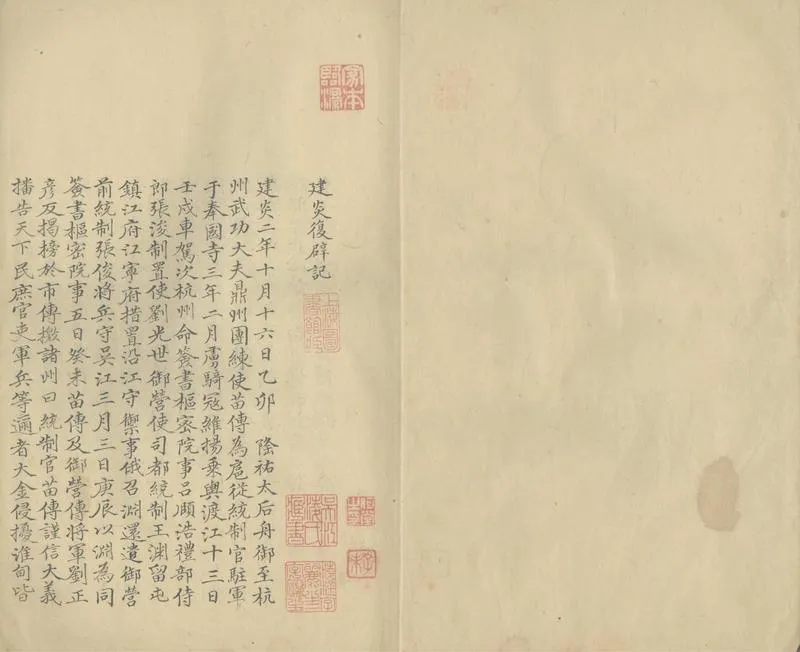 建炎復辟記
建炎二年十月十六日乙卯　隆祐太后舟御至杭
州武功大夫鼎州團練使苗傅為扈從統制官駐軍
于奉國寺三年二月虜騎冦維揚乗輿渡江十三日
壬戌車駕次杭州命簽書樞密院事吕頤浩禮部侍
郎張浚制置使劉光世御營使司都統制王淵留屯
鎮江府江寧府措置沿江守禦事俄召淵還遣御營
前統制張俊將兵守吴江三月三日庚辰以淵為同
簽書樞密院事五日癸未苗傅及御營傅將軍劉正
彦反揭榜於市傅檄諸州曰統制官苗傅謹信大義
播告天下民庶官吏軍兵等邇者大金侵擾淮甸皆